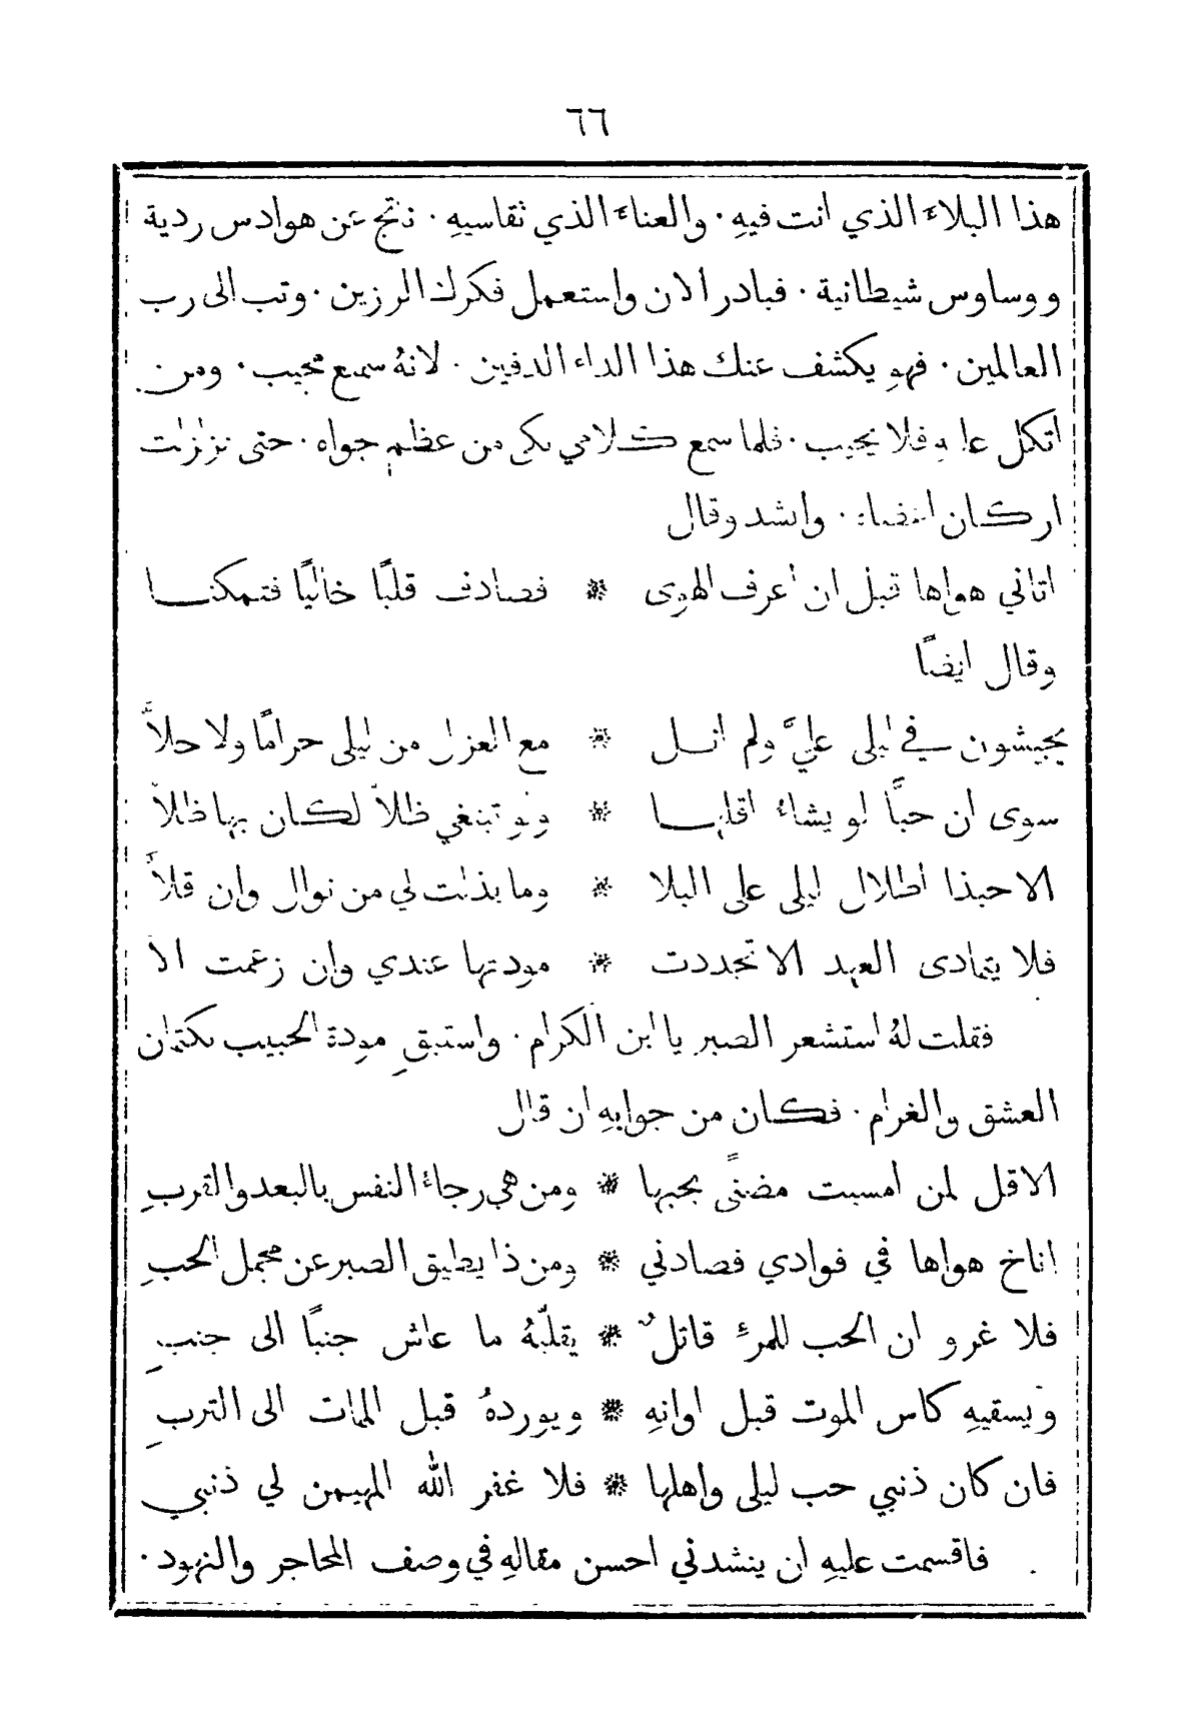 ٦٦
هذا البلاءَ الذي انت فيهِ · والعناءَ الذي تقاسيهِ · نتج عن هوادس ردية
ووساوس شيطانية · فبادر الان واستعمل فكرك الرزين · وتب الى رب
العالمين · فهو يكشف عنك هذا الداء الدفين · لانهُ سميع مجيب · ومن
اتكل عليه فلا يخيب · فلما سمع كلامي بكى من عظم جواه · حتى تزلزلت
اركان · وانشد وقال
اتاني هواها قبل ان اعرف الهوى * فصادف قلبًا خاليًا فتمكنـــا
وقال ايضًا
يجيشون في ليلى عليَّ ولم انـل * مع العزل من ليلى حرامًا ولا حلاَّ
سوى ان حبًّا لو يشاءُ اقلهـا * ولو تبتغي ظلاً لكان بها ظلاَّ
الا حبذا اطلال ليلى على البلا * وما بذلت لي من نوال وان قلاَّ
فلا يتمادى العهد الا تجددت * مودتها عندي وان زعمت الاَّ
فقلت لهُ استشعر الصبر يا ابن الكرام · واستبقِ مودة الحبيب بكتمان
العشق والغرام · فكان من جوابهِ ان قال
الا قل لمن امسيت مضنًى بحبها * ومن هي رجاءُ النفس بالبعد والقربِ
اناخ هواها في فوادي فصادني * ومن ذا يطيق الصبر عن مجمل الحبِ
فلا غرو ان الحب للمرءِ قاتلٌ * يقلّبهُ ما عاش جنبًا الى جنبِ
ويسقيهِ كاس الموت قبل اوانهِ * ويوردهُ قبل الممات الى التربِ
فان كان ذنبي حب ليلى واهلها * فلا غفر الله المهيمن لي ذنبي
فاقسمت عليهِ ان ينشدني احسن مقالهِ في وصف المحاجر والنهود ·